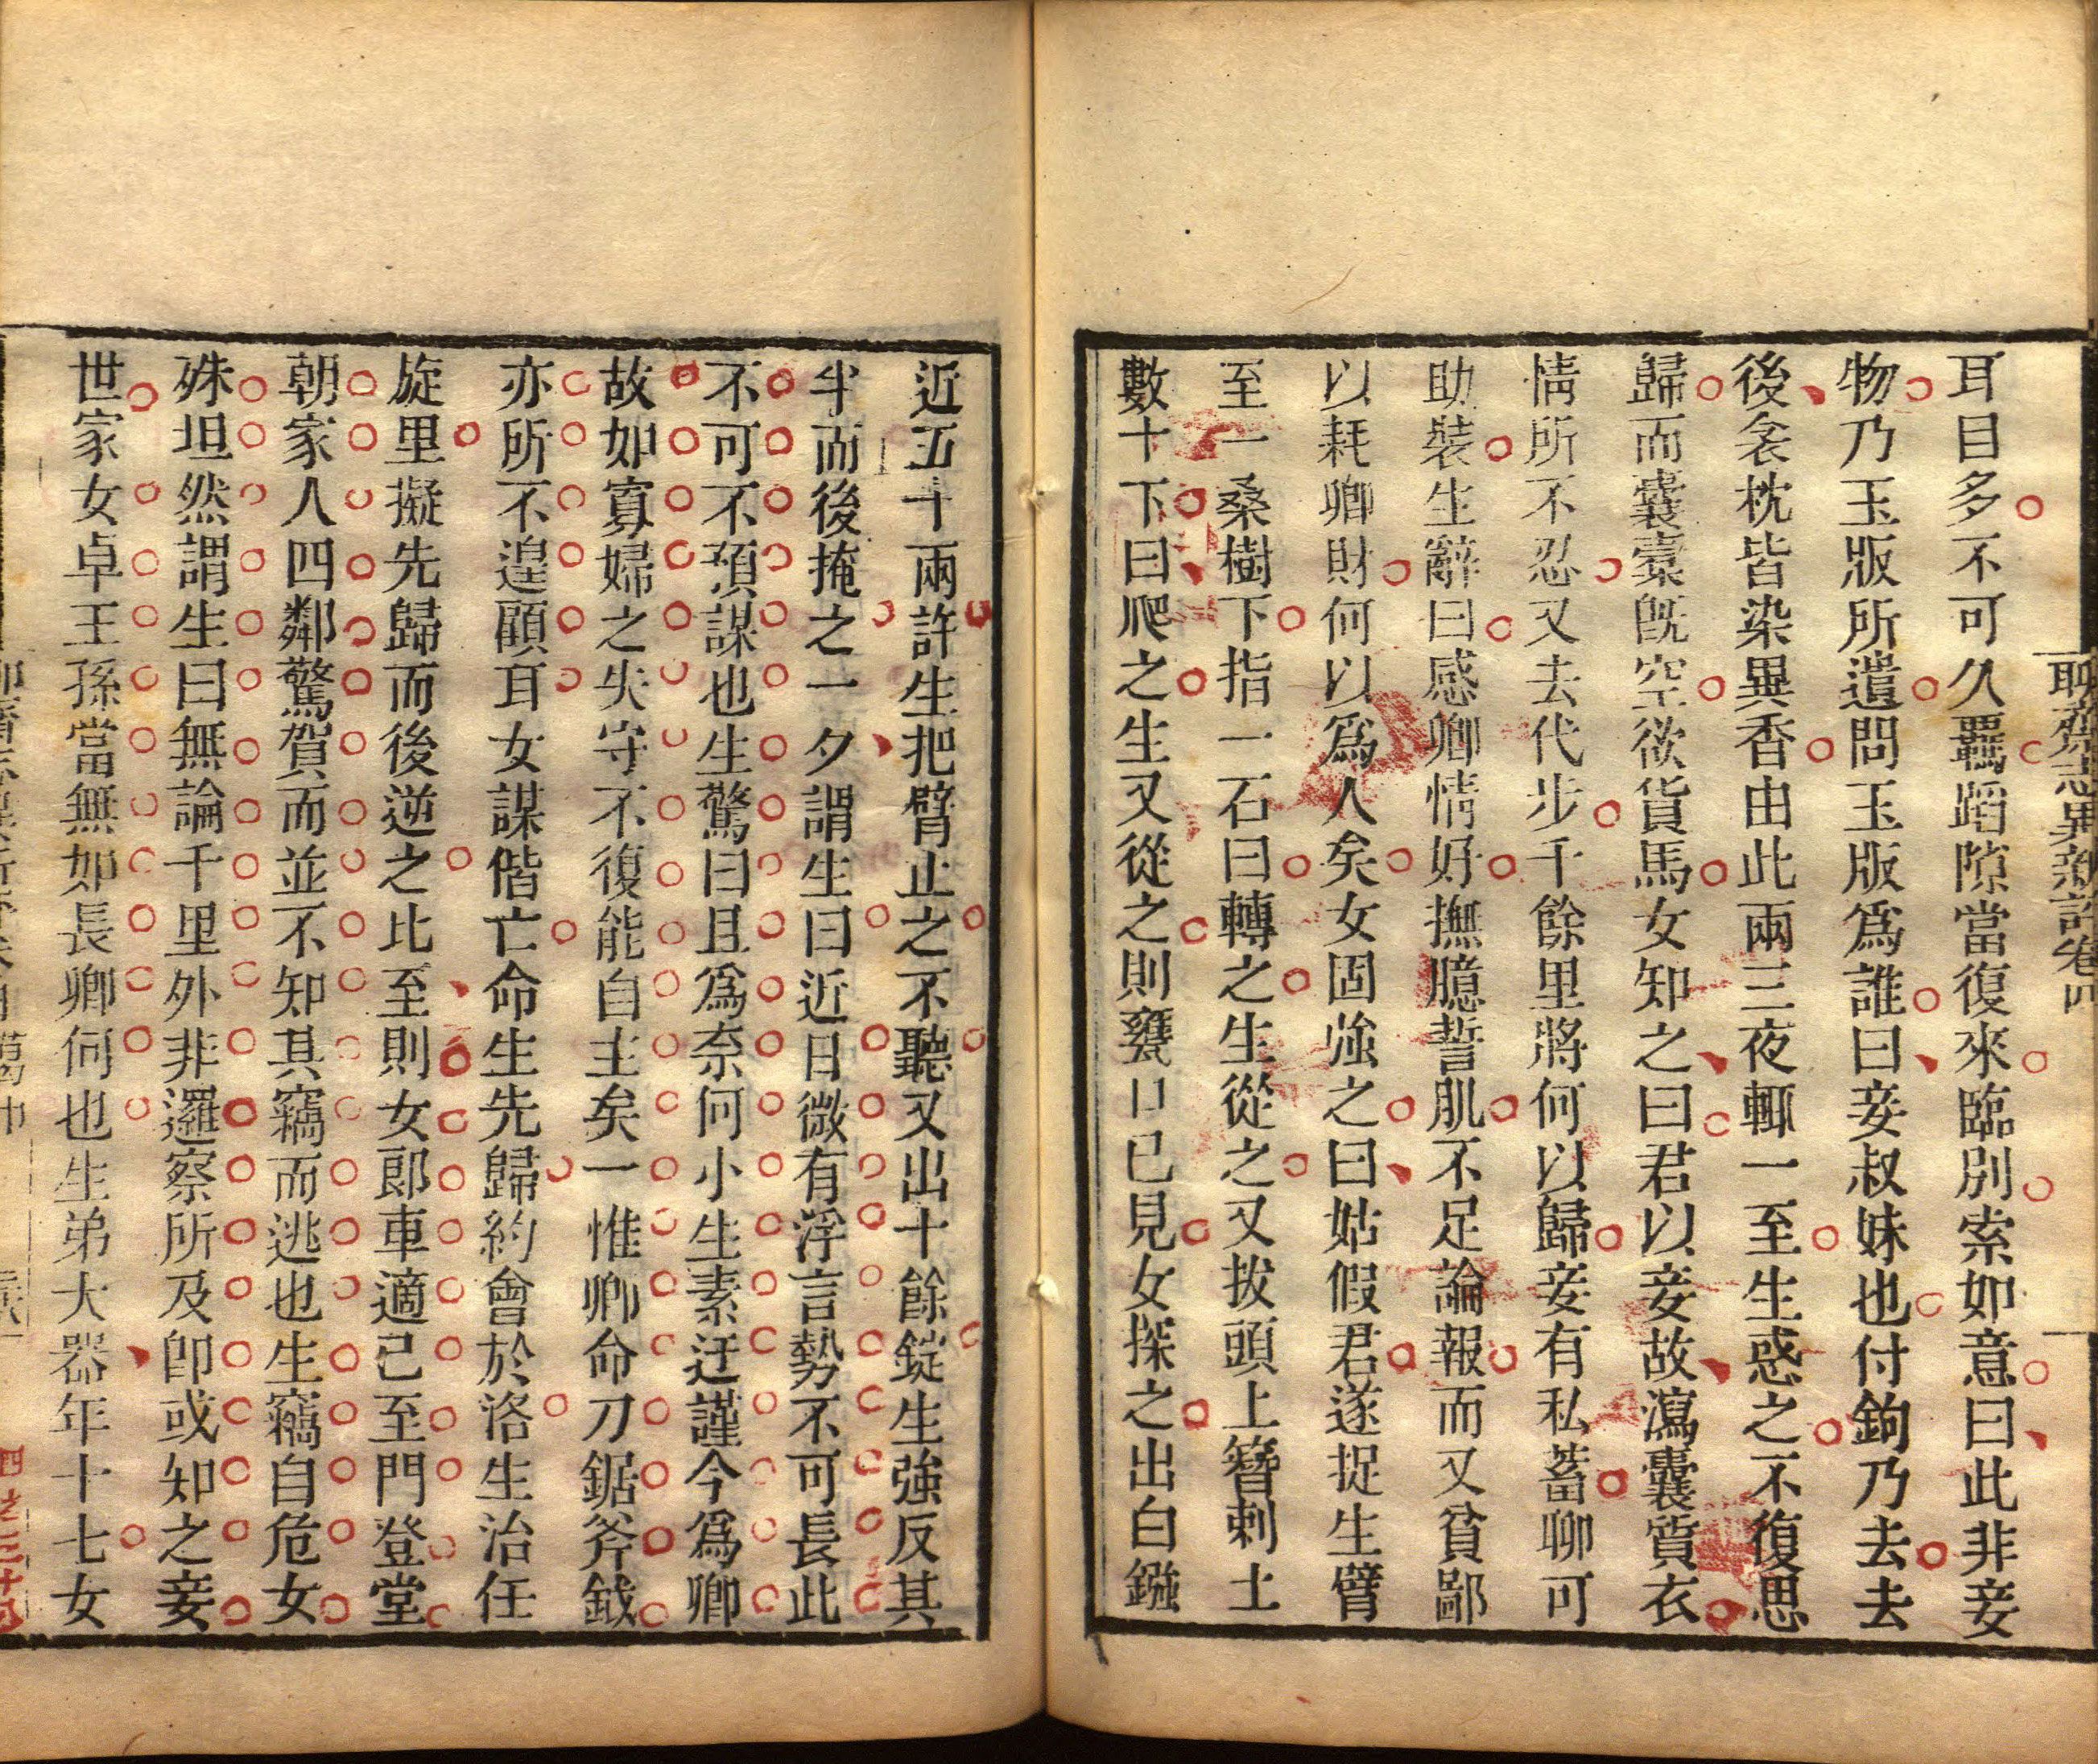 聊齋志異新評卷四
耳目多不可久羈蹈隙當復來臨別索如意曰此非妾
物乃玉版所遺問玉版爲誰曰妾叔妹也付鉤乃去去
後衾枕皆染異香由此兩三夜輒一至生惑之不復思
歸而囊橐旣空欲貨馬女知之曰君以妾故瀉囊質衣
情所不忍又去代步千餘里將何以歸妾有私蓄聊可
助裝生辭曰感卿情好撫臆誓肌不足論報而又貧鄙
以耗卿財何以爲人矣女固強之曰姑假君遂捉生臂
至一桑樹下指一石曰轉之生從之又拔頭上簪刺土
數十下曰爬之生又從之則甕口已見女探之出白鏹
近五十兩許生把臂止之不聽又出十餘錠生強反其
半而後掩之一夕謂生曰近日微有浮言勢不可長此
不可不預謀也生驚曰且爲奈何小生素迂謹今爲卿
故如寡婦之失守不復能自主矣一惟卿命刀鋸斧鉞
亦所不遑顧耳女謀偕亡命生先歸約會於洛生治任
旋里擬先歸而後逆之比至則女郎車適已至門登堂
朝家人四鄰驚賀而並不知其竊而逃也生竊自危女
殊坦然謂生曰無論千里外非邏察所及卽或知之妾
世家女卓王孫當無如長卿何也生弟大器年十七女
葛巾